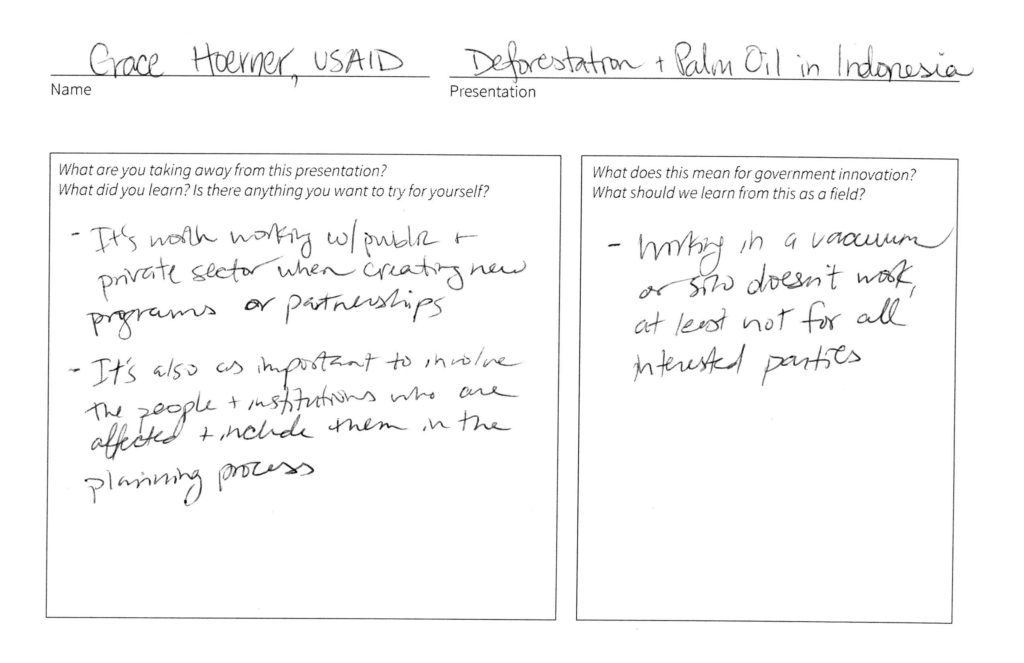 Grace Hoerner, USAID
Name
Deforestation + Palm Oil in Indonesia
Presentation
What are you taking away from this presentation?
What did you learn? Is there anything you want to try for yourself?
- It's worth working w/ public +
private sector when creating new
programs or partnerships
- It's also as important to involve
the people + institutions who are
affected + include them in the
planning process
What does this mean for government innovation?
What should we learn from this as a field?
- Working in a vacuum
or silo doesn't work,
at least not for all
interested parties